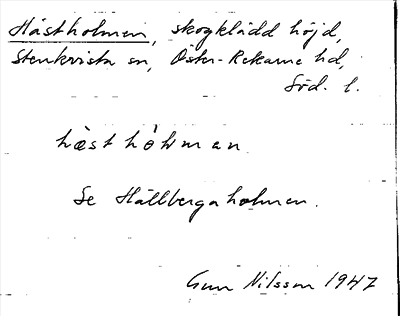 Hästholmen, skogklädd höjd,
Stenkvista sn, Öster-Rekarne hd,
Söd. l.
Se Hällbergaholmen.
Gun Nilsson 1947